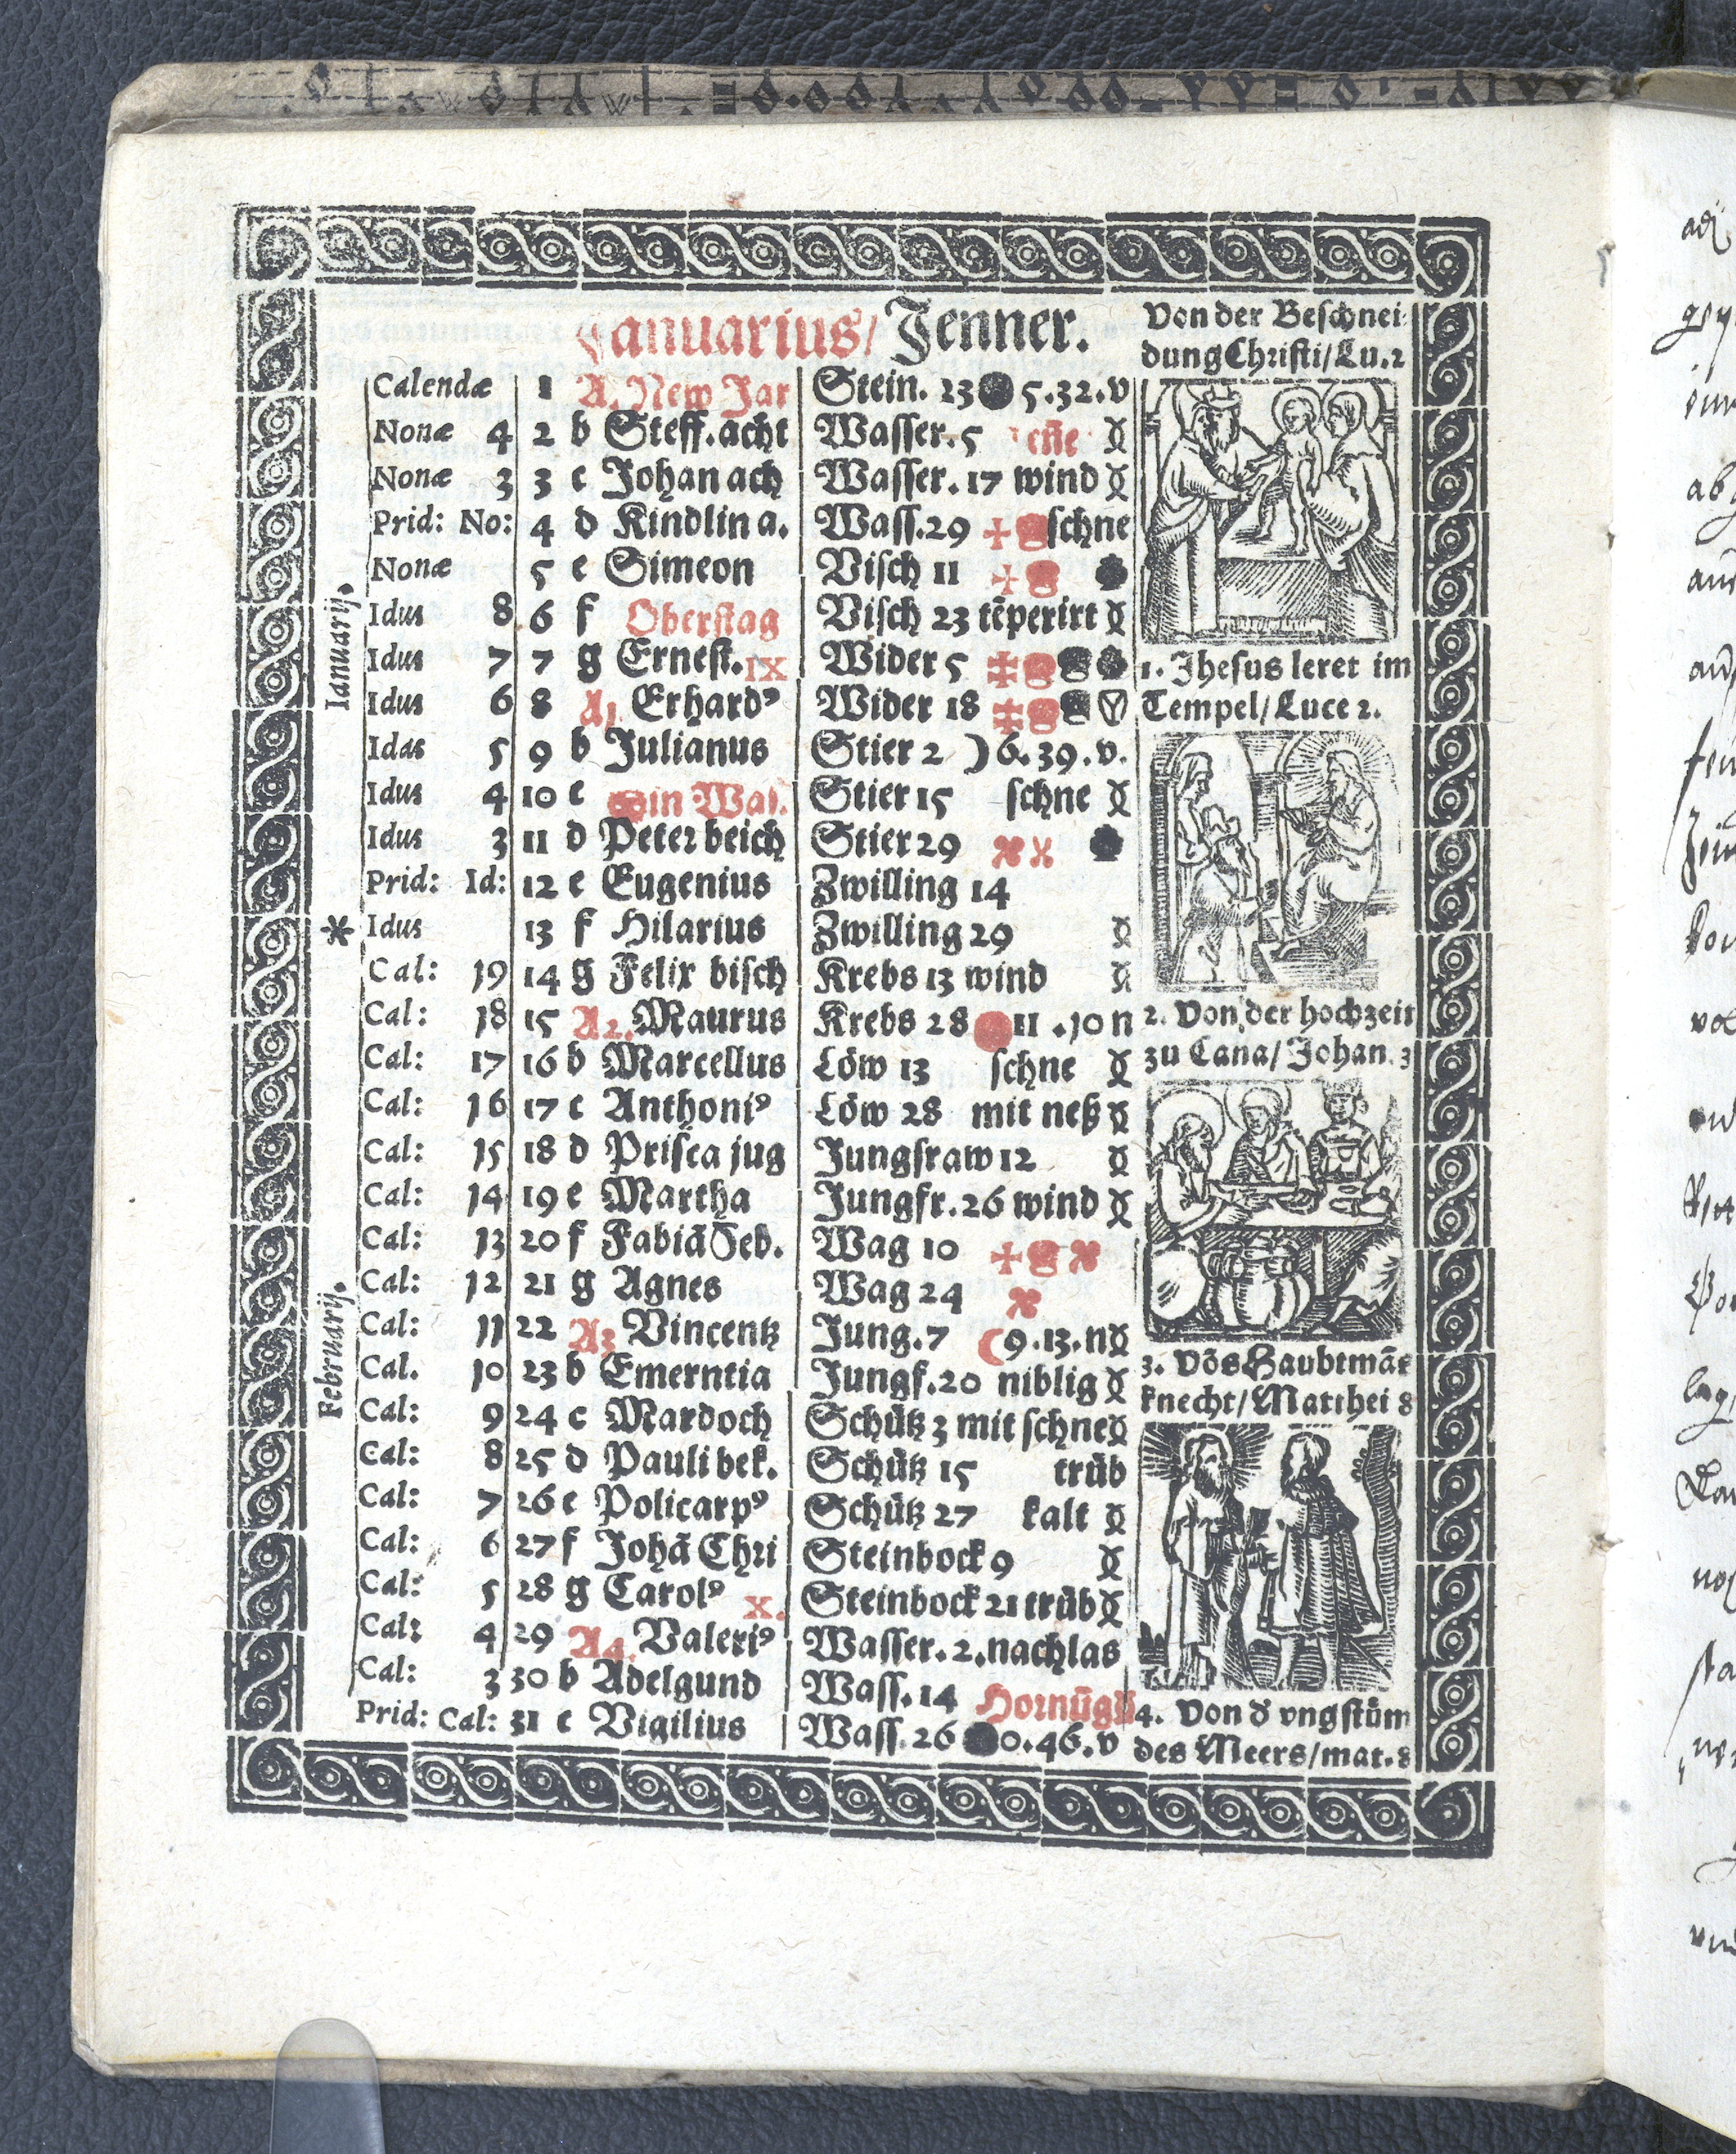 Januarius/ Jenner.
Calendæ 1 A. New Jar Stein. 23 5.32.v
Nonæ 4 2 b Steff. acht Wasser. 5
Nonæ 3 3 c Johan ach Wasser. 17 wind
Prid: No: 4 d Kindlin a. Wass. 29 schne
Nonæ 5 e Simeon Visch 11
Idus 8 6 f Oberstag Visch 23 tēperirt
Idus 7 7 g Ernest. IX Wider 5
Idus 6 8 A1 Erhardꝰ Wider 18
Idus 5 9 b Julianus Stier 2 ) 6.39.v.
Idus 4 10 c Stier 15 schne
Idus 3 11 d Peter beich Stier 29
Prid: Id: 12 e Eugenius Zwilling 14
Idus 13 f Hilarius Zwilling 29
Cal: 19 14 g Felix bisch Krebs 13 wind
Cal: 18 15 A2. Maurus Krebs 28 11.10 n
Cal: 17 16 b Marcellus Löw 13 schne
Cal: 16 17 c Anthoniꝰ Löw 28 mit neß
Cal: 15 18 d Prisca jug Jungfraw 12
Cal: 14 19 e Martha Jungfr. 26 wind
Cal: 13 20 f Fabiā Seb. Wag 10
Cal: 12 21 g Agnes Wag 24
Cal: 11 22 A3 Vincentz Jung. 7 ( 9.13.n
Cal. 10 23 b Emerntia Jungf. 20 niblig
Cal: 9 24 c Mardoch Schütz 3 mit schne
Cal: 8 25 d Pauli bek. Schütz 15 trüb
Cal: 7 26 e Policarpꝰ Schütz 27 kalt
Cal: 6 27 f Johā Chri Steinbock 9
Cal: 5 28 g Carolꝰ X. Steinbock 21 trüb
Cal: 4 29 A4. Valeriꝰ Wasser. 2. nachlas
Cal: 3 30 b Adelgund Wass. 14
Prid: Cal: 31 c Vigilius Wass. 26 0.46.v
Ianuarij.
Februarij.
Von der Beschnei
dung Christi/ Lu. 2
1. Jhesus leret im
Tempel/ Luce 2.
2. Von der hochzeit
zu Cana/ Johan. 3
3. Vōs Haubtmās
knecht/ Matthei 8
4. Von d vngstüm
des Meers/ mat. 8